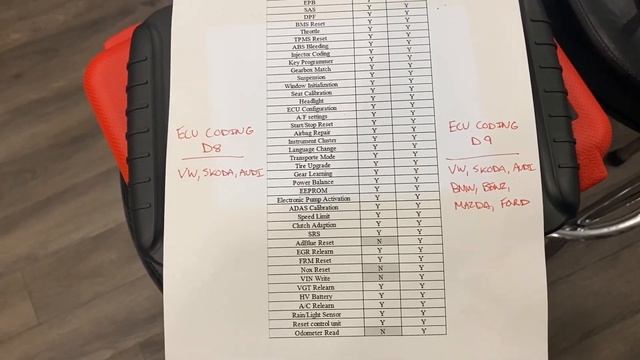 EPB Y Y
SAS Y Y
DPF Y Y
BMS Reset Y Y
Throttle Y Y
TPMS Reset Y Y
ABS Bleeding Y Y
Injector Coding Y Y
Key Programmer Y Y
Gearbox Match Y Y
Suspension Y Y
Window Initialization Y Y
Seat Calibration Y Y
Headlight Y Y
ECU Configuration Y Y
A/F settings Y Y
Start/Stop Reset Y Y
Airbag Repair Y Y
Instrument Cluster Y Y
Language Change Y Y
Transporte Mode Y Y
Tire Upgrade Y Y
Gear Learning Y Y
Power Balance Y Y
EEPROM Y Y
Electronic Pump Activation Y Y
ADAS Calibration Y Y
Speed Limit Y Y
Clutch Adaption Y Y
SRS Y Y
AdBlue Reset N Y
EGR Relearn Y Y
FRM Reset Y Y
Nox Reset N Y
VIN Write N Y
VGT Relearn Y Y
HV Battery Y Y
A/C Relearn Y Y
Rain/Light Sensor Y Y
Reset control unit Y Y
Odometer Read N Y
ECU CODING
D8
VW, SKODA, AUDI
ECU CODING
D9
VW, SKODA, AUDI
BMW, BENZ,
MAZDA, FORD